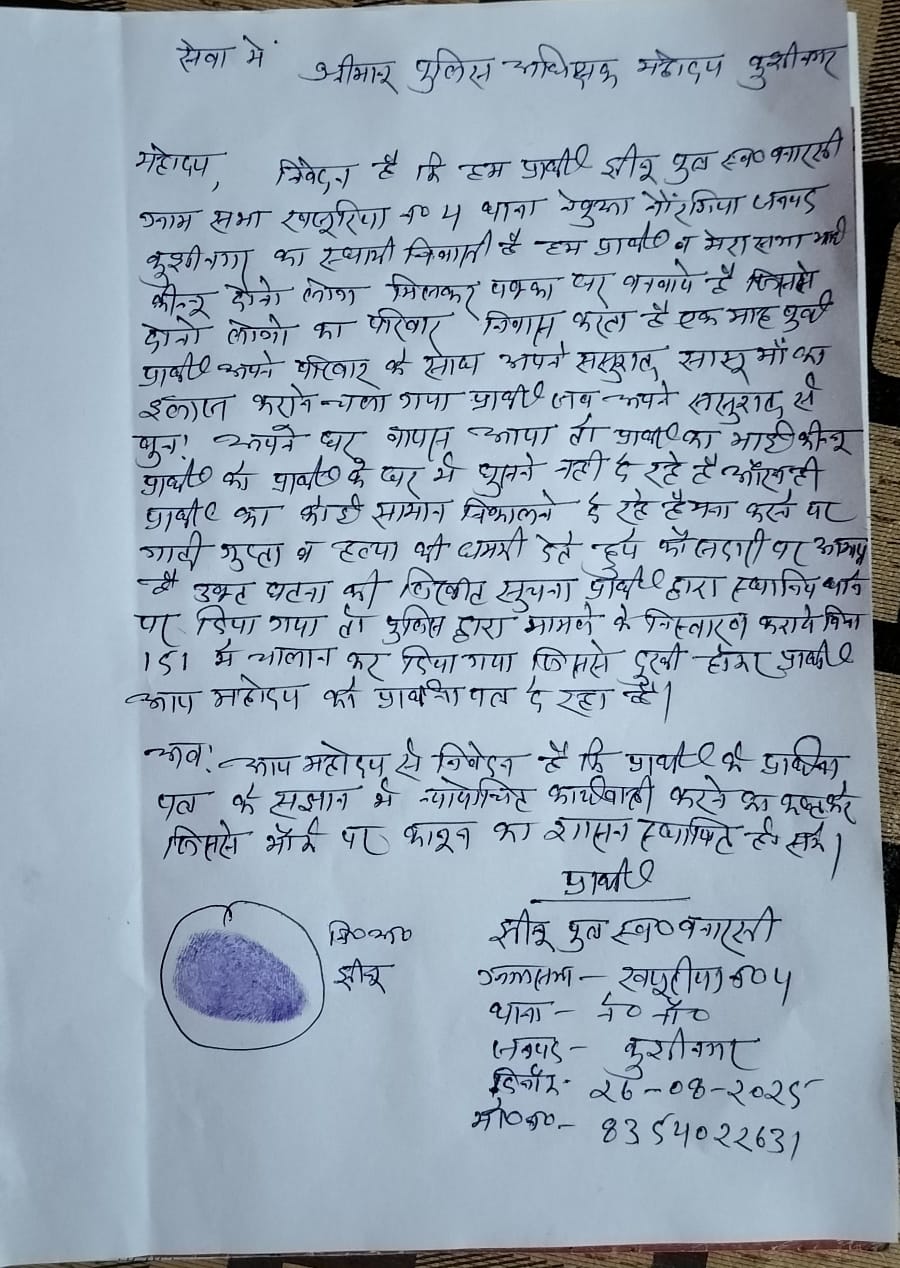 सेवा में
श्रीमान् पुलिस अधिक्षक महोदय कुशीनगर
महोदय, निवेदन है कि हम प्रार्थी झीनू पुत्र स्व० बनारसी
ग्राम सभा खजूरिया न० 4 थाना नेबुआ नौरंगिया जनपद
कुशीनगर का स्थायी निवासी है हम प्रार्थी व मेरा सगा भाई
दोनो लोग मिलकर पक्का घर बनवाये है जिसमे
दोनो लोगो का परिवार निवास करता है एक माह पुर्व
प्रार्थी अपने परिवार के साथ अपने ससुराल सासू माँ का
इलाज कराने चला गया प्रार्थी जब अपने ससुराल से
पुनः अपने घर वापस आया तो प्रार्थी का भाई
प्रार्थी को प्रार्थी के घर में घुसने नही दे रहे है और नही
प्रार्थी का कोई सामान निकालने दे रहे है मना करने पर
गाली गुप्ता व हत्या की धमकी देते हुये फौजदारी पर
है उक्त घटना की लिखीत सुचना प्रार्थी द्वारा स्थानिय थाने
पर दिया गया तो पुलिस द्वारा मामले के निस्तारण कराये बिना
151 में चालान कर दिया गया जिससे दुखी होकर प्रार्थी
आप महोदय को प्रार्थना पत्र दे रहा है।
अतः आप महोदय से निवेदन है कि प्रार्थी के प्रार्थना
पत्र के सज्ञान में न्यायोचित कार्यवाही करने का कष्ट करे
जिससे मौके पर कानून का शासन स्थापित हो सके।
प्रार्थी
नि०अ०
झीनू
झीनू पुत्र स्व० बनारसी
ग्रामसभा - खजूरीया न० 4
थाना - ने० नौ०
जनपद - कुशीनगर
दिनाँक- 26-08-2025
मो०न०- 8354022631